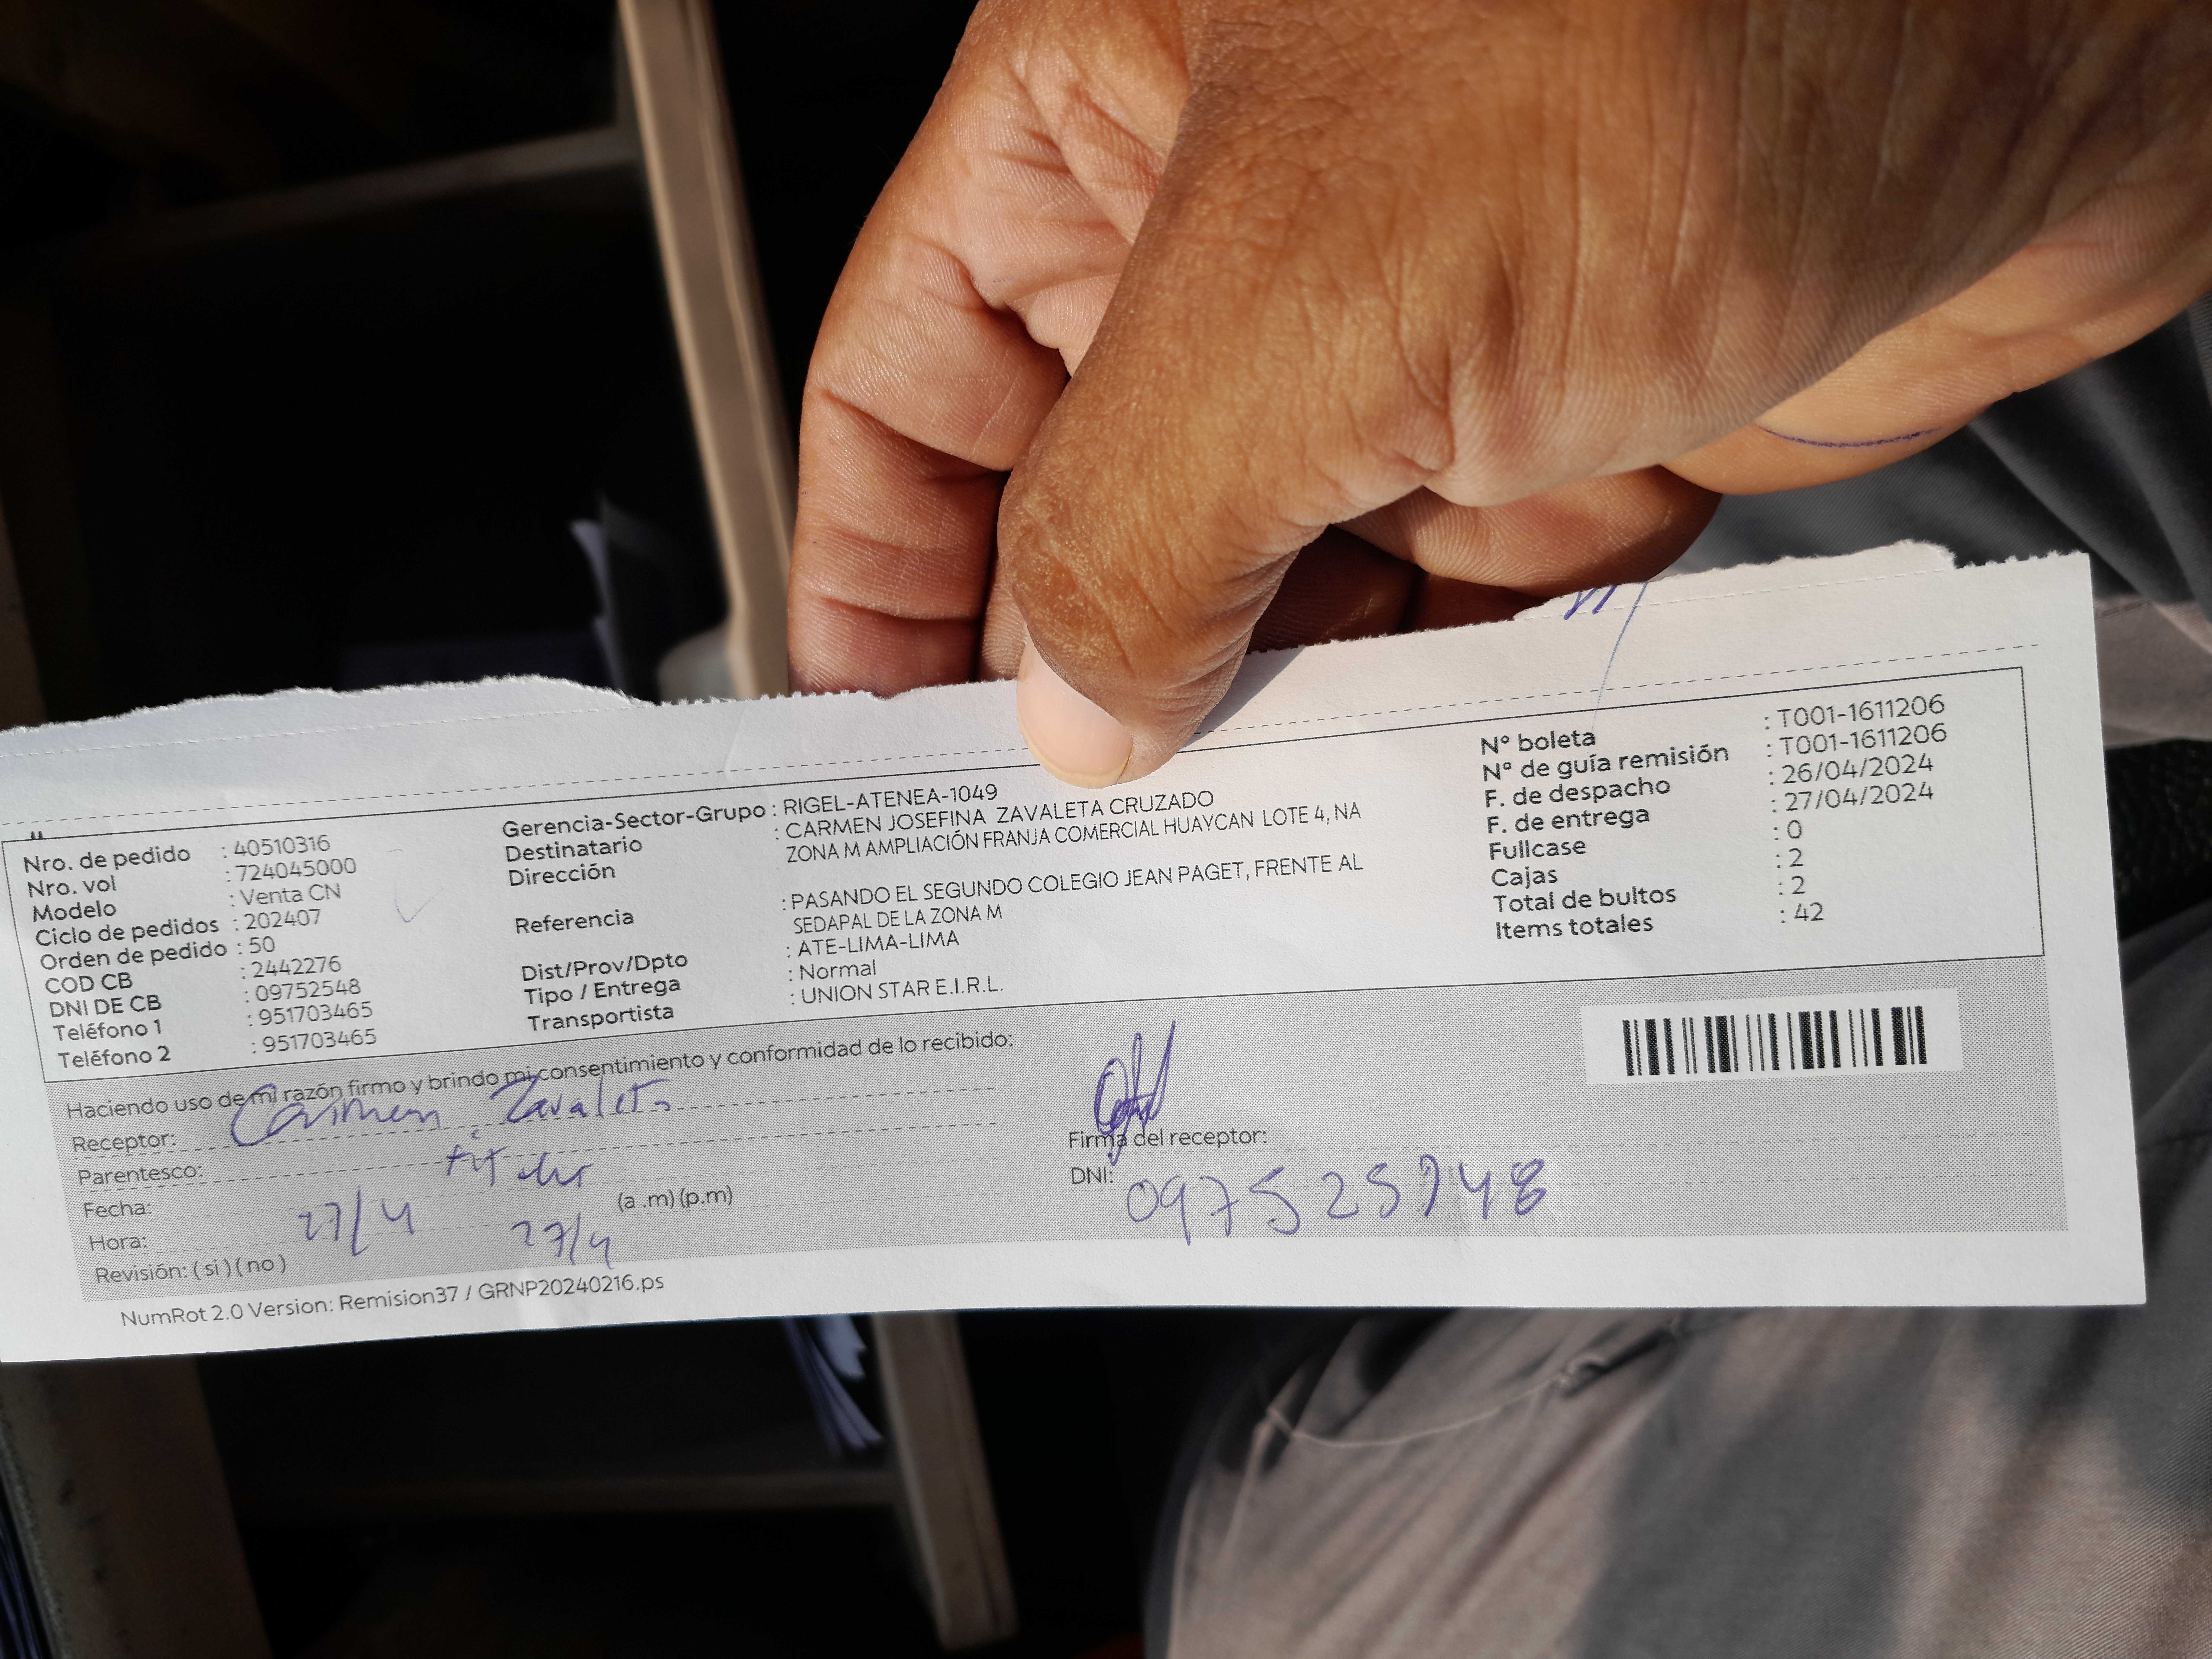 Nro. de pedido : 40510316
Nro. vol : 724045000
Modelo : Venta CN
Ciclo de pedidos : 202407
Orden de pedido : 50
COD CB : 2442276
DNI DE CB : 09752548
Teléfono 1 : 951703465
Teléfono 2 : 951703465
Gerencia-Sector-Grupo : RIGEL-ATENEA-1049
Destinatario : CARMEN JOSEFINA ZAVALETA CRUZADO
Dirección ZONA M AMPLIACIÓN FRANJA COMERCIAL HUAYCAN LOTE 4, NA
Referencia : PASANDO EL SEGUNDO COLEGIO JEAN PAGET, FRENTE AL
SEDAPAL DE LA ZONA M
Dist/Prov/Dpto : ATE-LIMA-LIMA
Tipo / Entrega : Normal
Transportista : UNION STAR E.I.R.L.
Nº boleta : T001-1611206
Nº de guía remisión : T001-1611206
F. de despacho : 26/04/2024
F. de entrega : 27/04/2024
Fullcase : 0
Cajas : 2
Total de bultos : 2
Items totales : 42
Haciendo uso de mi razón firmo y brindo mi consentimiento y conformidad de lo recibido:
Receptor: Carmen Zavaleta
Parentesco: titular
Fecha: 27/4
Hora: 27/4 (a .m) (p.m)
Revisión: ( si ) ( no )
Firma del receptor:
DNI:
NumRot 2.0 Version: Remision37 / GRNP20240216.ps